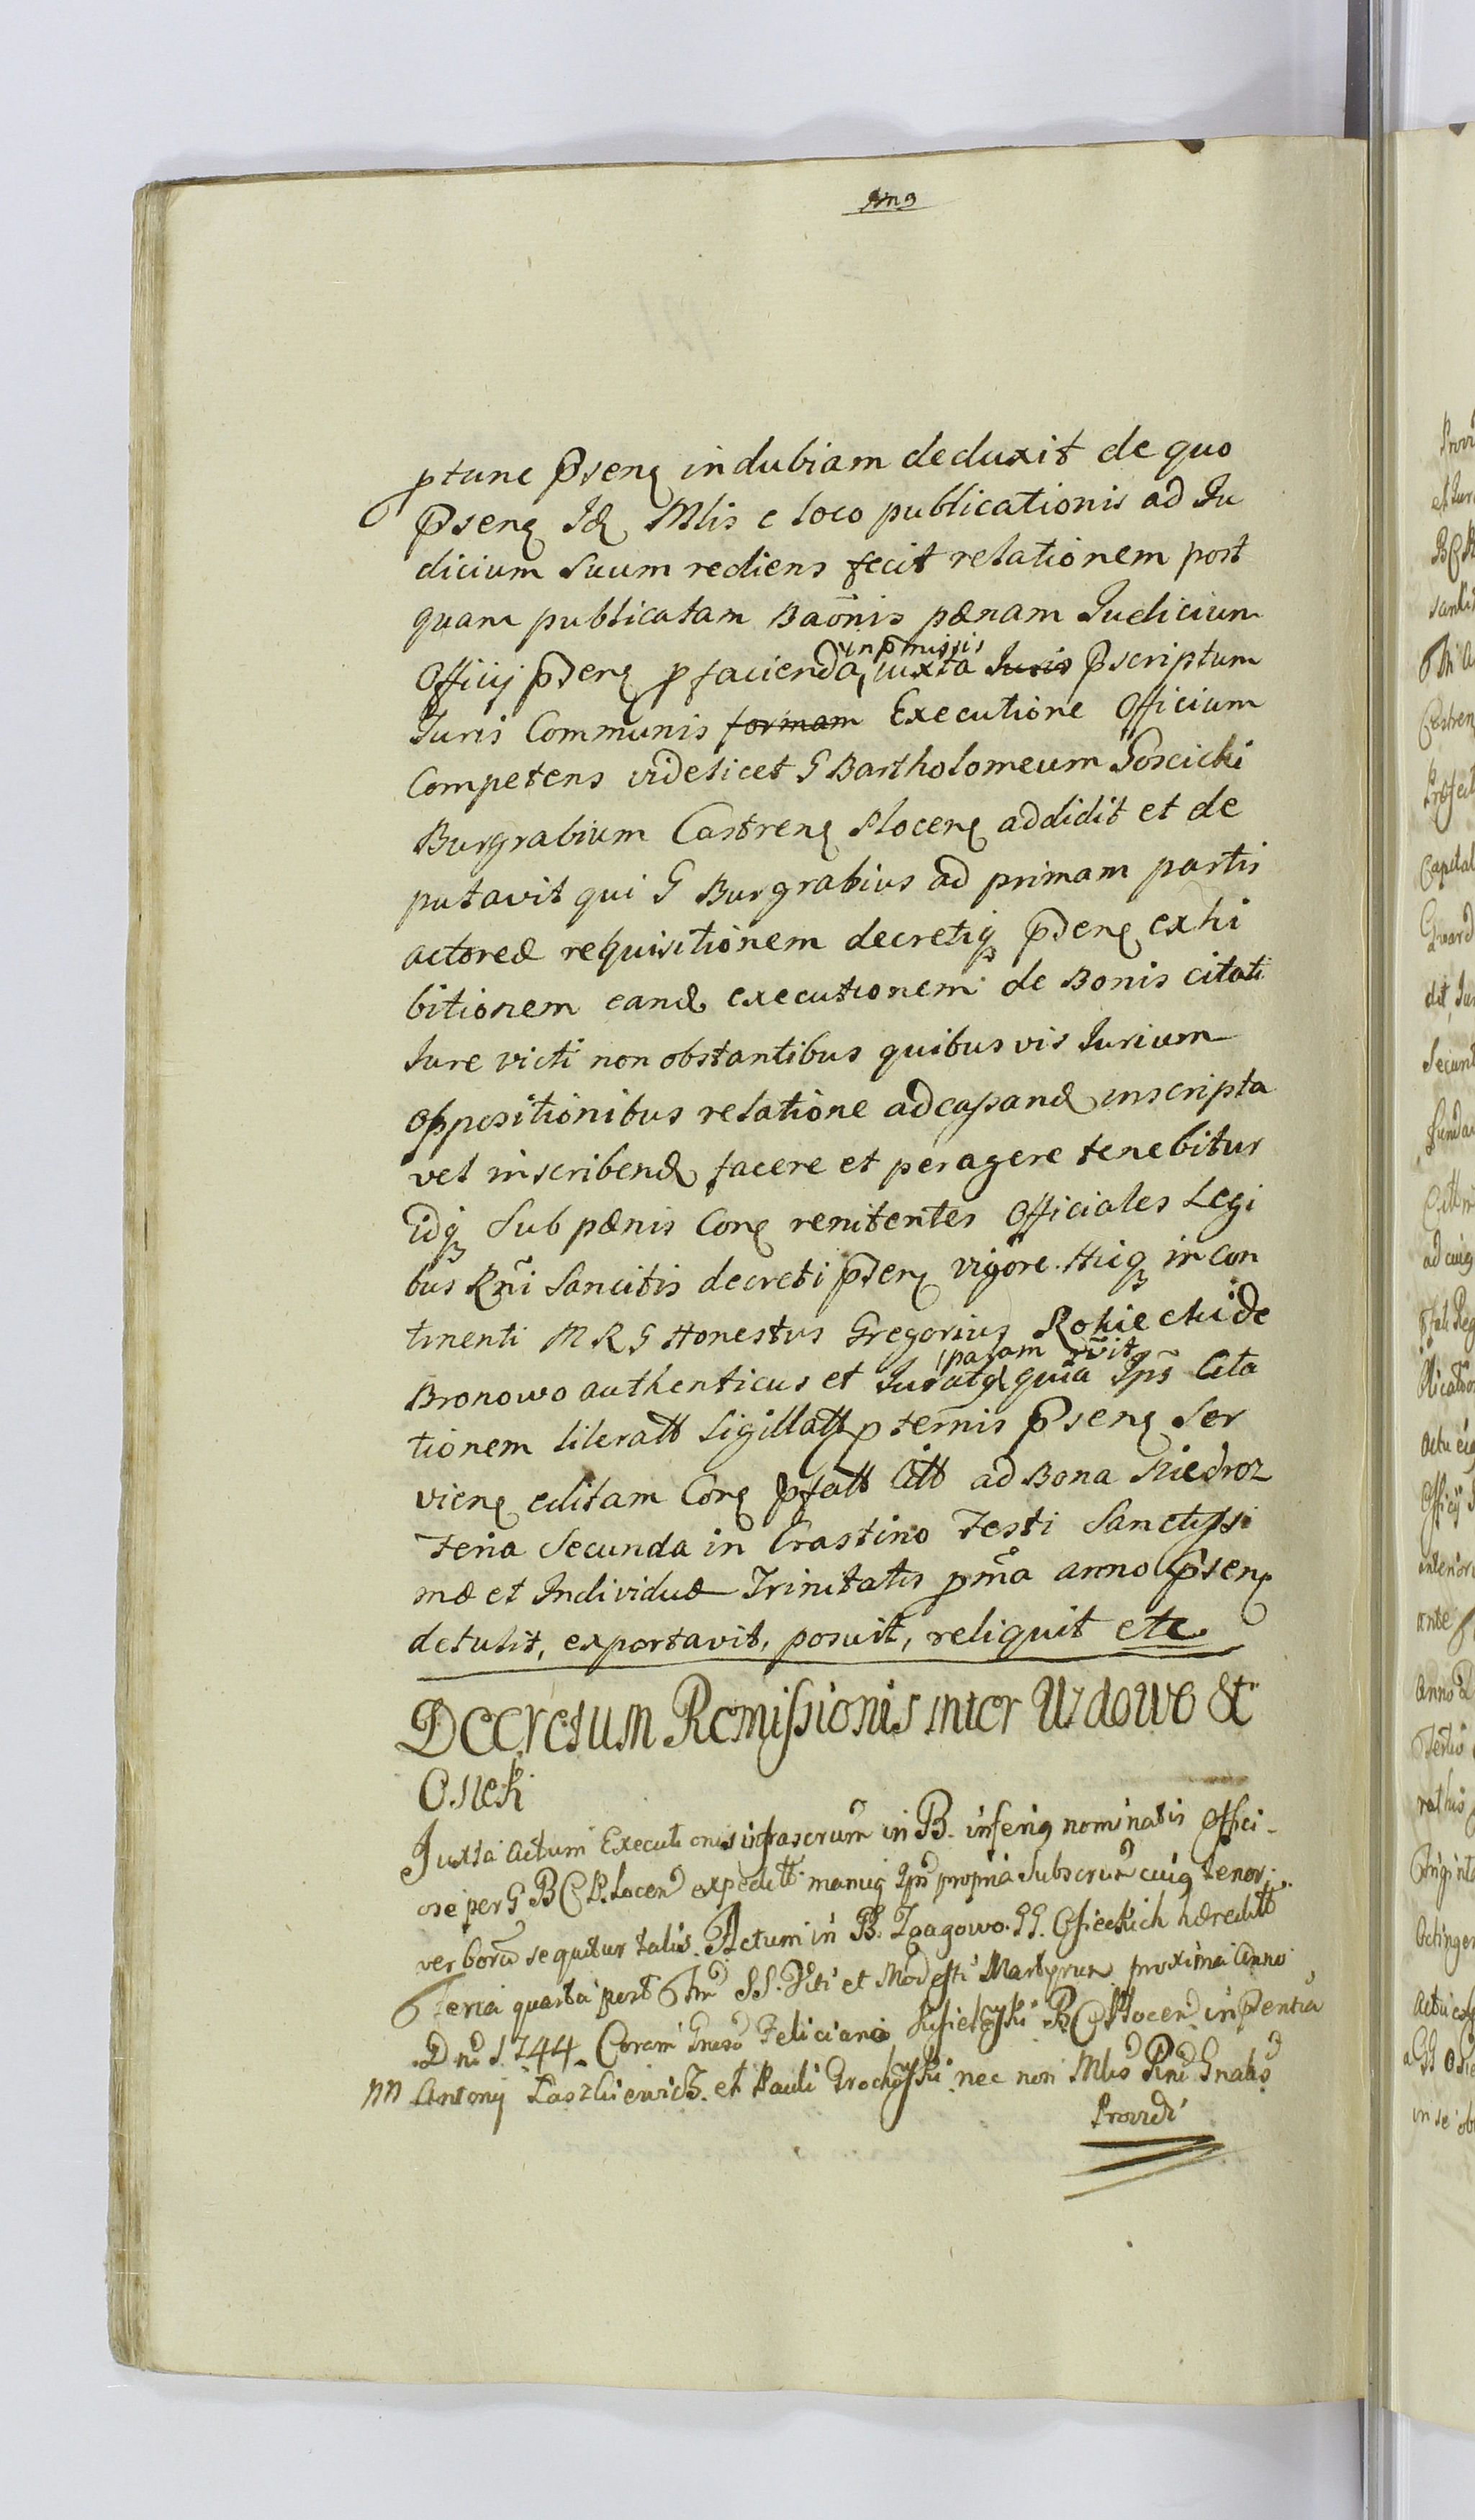 ptunc Pseng indubiam deduxit de quo
Pseng Id Mlis e loco publicationis ad Ju
dicium Suum rediens fecit relationem post
quam publicatam Baõnis pænam Judicium
Officij pDeng p facienda in pmissis iuxta Juris Pscriptum
Juris Communis formam Executione Officium
Competens videlicet G Bartholomeum Goscicki
Burgrabium Castreng Ploceng addidit et de
putavit qui G Burgrabius ad primam partis
actoreæ requisitionem decretiq pDeng exhi
bitionem eand executionem de Bonis citati
Jure victi non obstantibus quibus vis Jurium
oppositionibus relatione ad cassand inscripta
vel inscribend facere et peragere tenebitur
idq Sub pænis Cong renitentes Officiales Legi
bus Rñi Sancitis decreti pDeng vigore. Hicq in con
tinenti M R G Honestus Gregorius Rokicki de
Bronowo authenticus et Juratq palam rñvit quia Ips Cita
tionem literatt Sigillatt p ternis Pseng Ser
vieng editam Cong pfatt Citt ad Bona Niedroz
Feria Secunda in Crastino Festi Sanctissi
mæ et Individuæ Trinitatis pma anno pseng
detulit, exportavit, posuit, reliquit etc.
Decretum Remissionis inter Wdowo &
Osiek
Juxta Actum Executionis infrascrum in B. inferig nominatis Offici-
ose per G B C Plocen expeditt manuq Ips propria Subscrum cuig tenor
verborũ sequitur talis. Actum in B. Zgagowo. GG. Osieckich hæreditt
Feria quarta post Ftm SS. Viti et Modesti Martyrum proxima Anno
Dni 1744. Coram Gnso Feliciano Kisielyski B C Plocen in pDentia
MM Antonij Laszkiewicz et Pauli Grochoski nec non Mlis Rni Gnalis
Providi